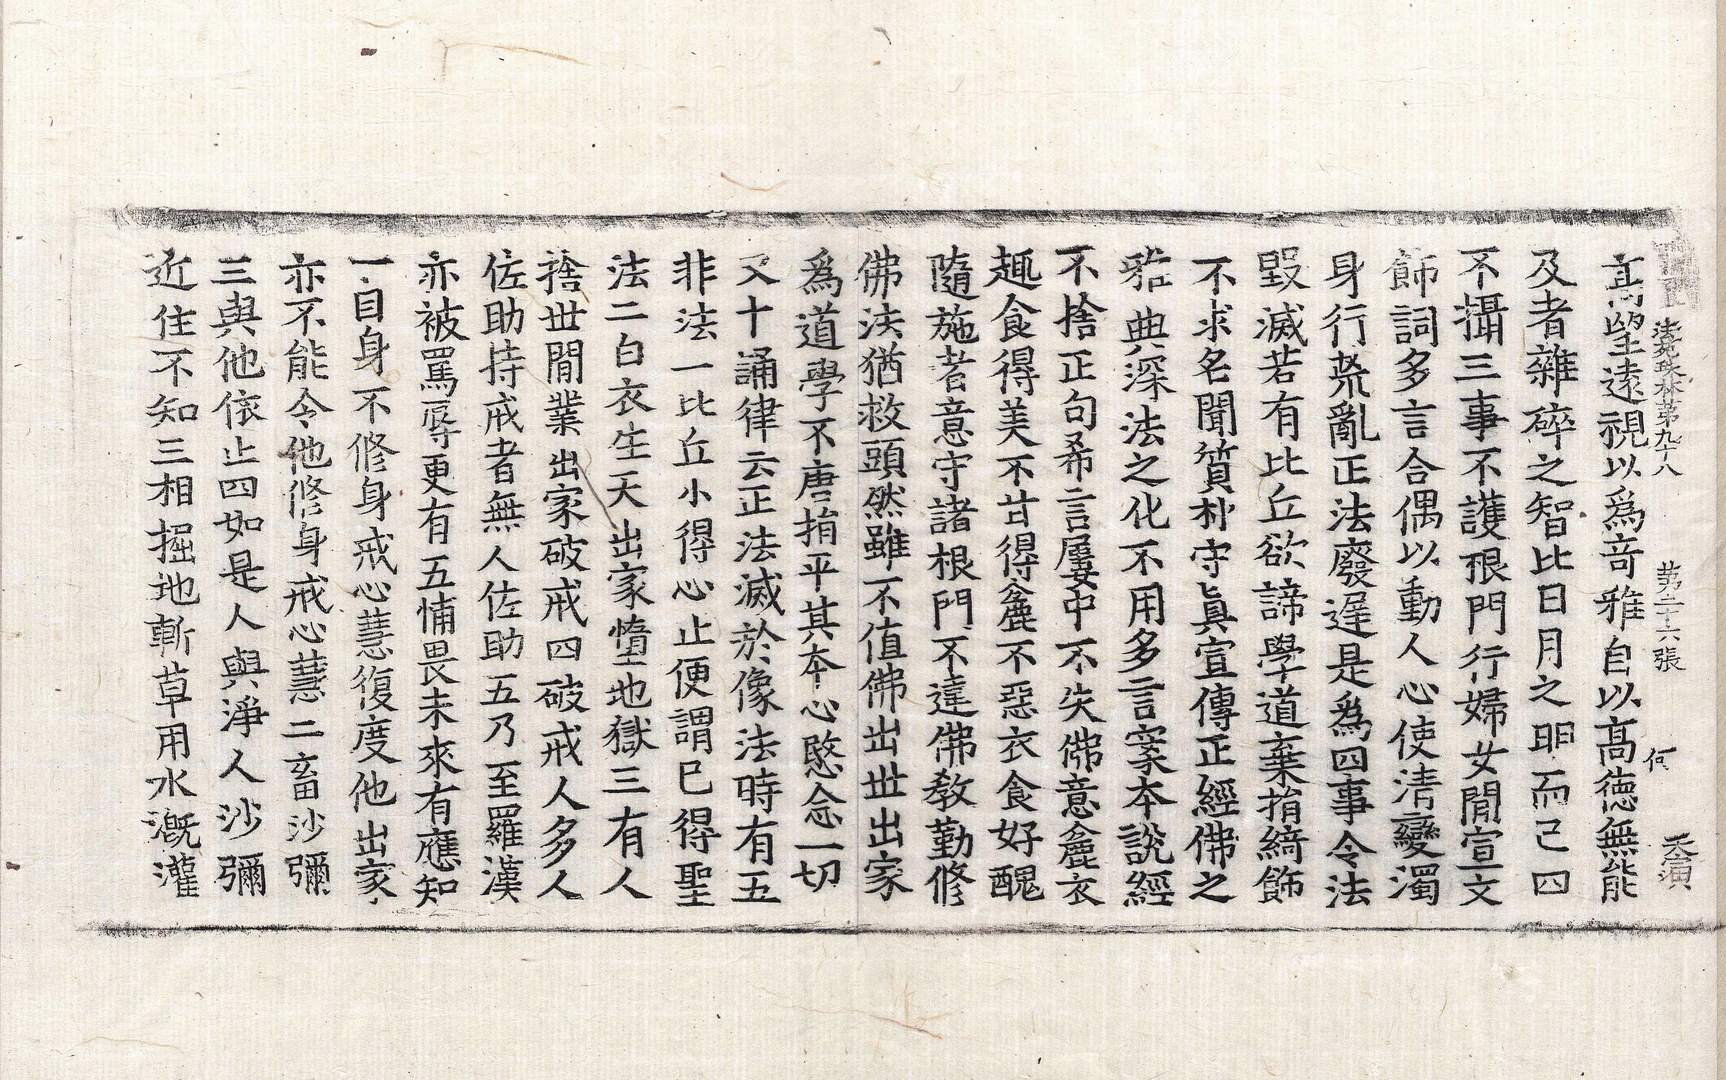 法苑珠林第九十八 第二十六張 何 天演
高望遠視以爲奇雅自以高徳無能
及者雜碎之智比日月之明而已四
不攝三事不護根門行婦女閒宣文
飾詞多言合偶以動人心使清變濁
身行荒亂正法廢遲是爲四事令法
毀滅若有比丘欲諦學道棄捐綺飾
不求名聞質朴守眞宣傳正經佛之
雅典深法之化不用多言案本說經
不捨正句希言屢中不失佛意麁衣
趣食得美不甘得麁不惡衣食好醜
隨施者意守諸根門不違佛教勤修
佛法猶救頭然雖不值佛出世出家
爲道學不唐捐平其本心愍念一切
又十誦律云正法滅於像法時有五
非法一比丘小得心止便謂已得聖
法二白衣生天出家墮地獄三有人
捨世閒業出家破戒四破戒人多人
佐助持戒者無人佐助五乃至羅漢
亦被罵辱更有五怖畏未來有應知
一自身不修身戒心慧復度他出家
亦不能令他修身戒心慧二畜沙彌
三與他依止四如是人與淨人沙彌
近住不知三相掘地斬草用水漑灌